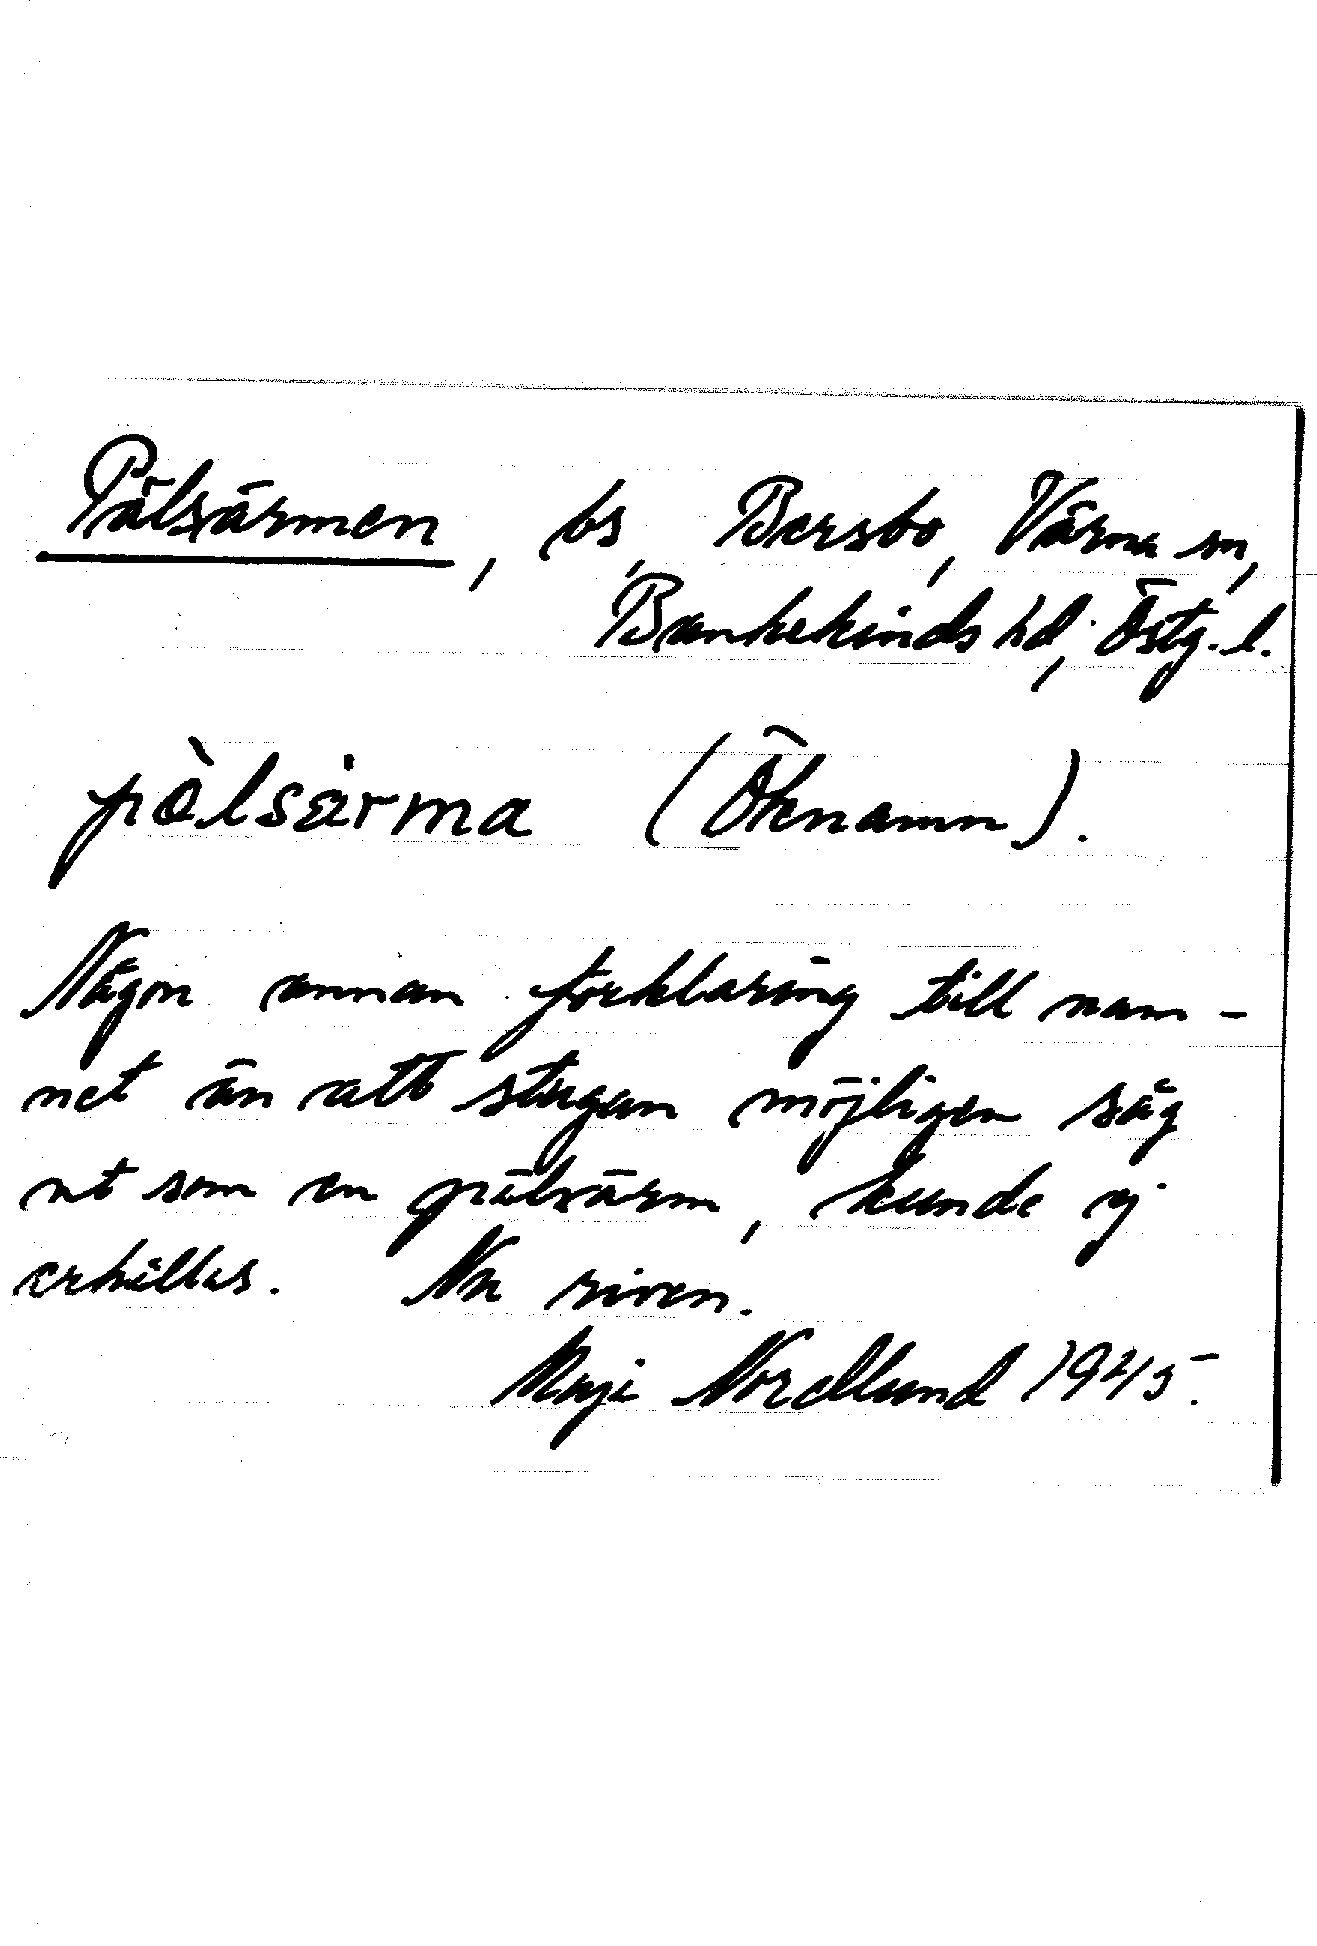 Pälsärmen, bs, Bersbo, Värna sn,
Bankekinds hd, Östg. l.
pὰlsärma (Öknamn).
Någon annan förklaring till nam-
net än att stugan möjligen såg
ut som en pälsärm, kunde ej
erhållas. Nu riven.
Maji Nordlund 1945.